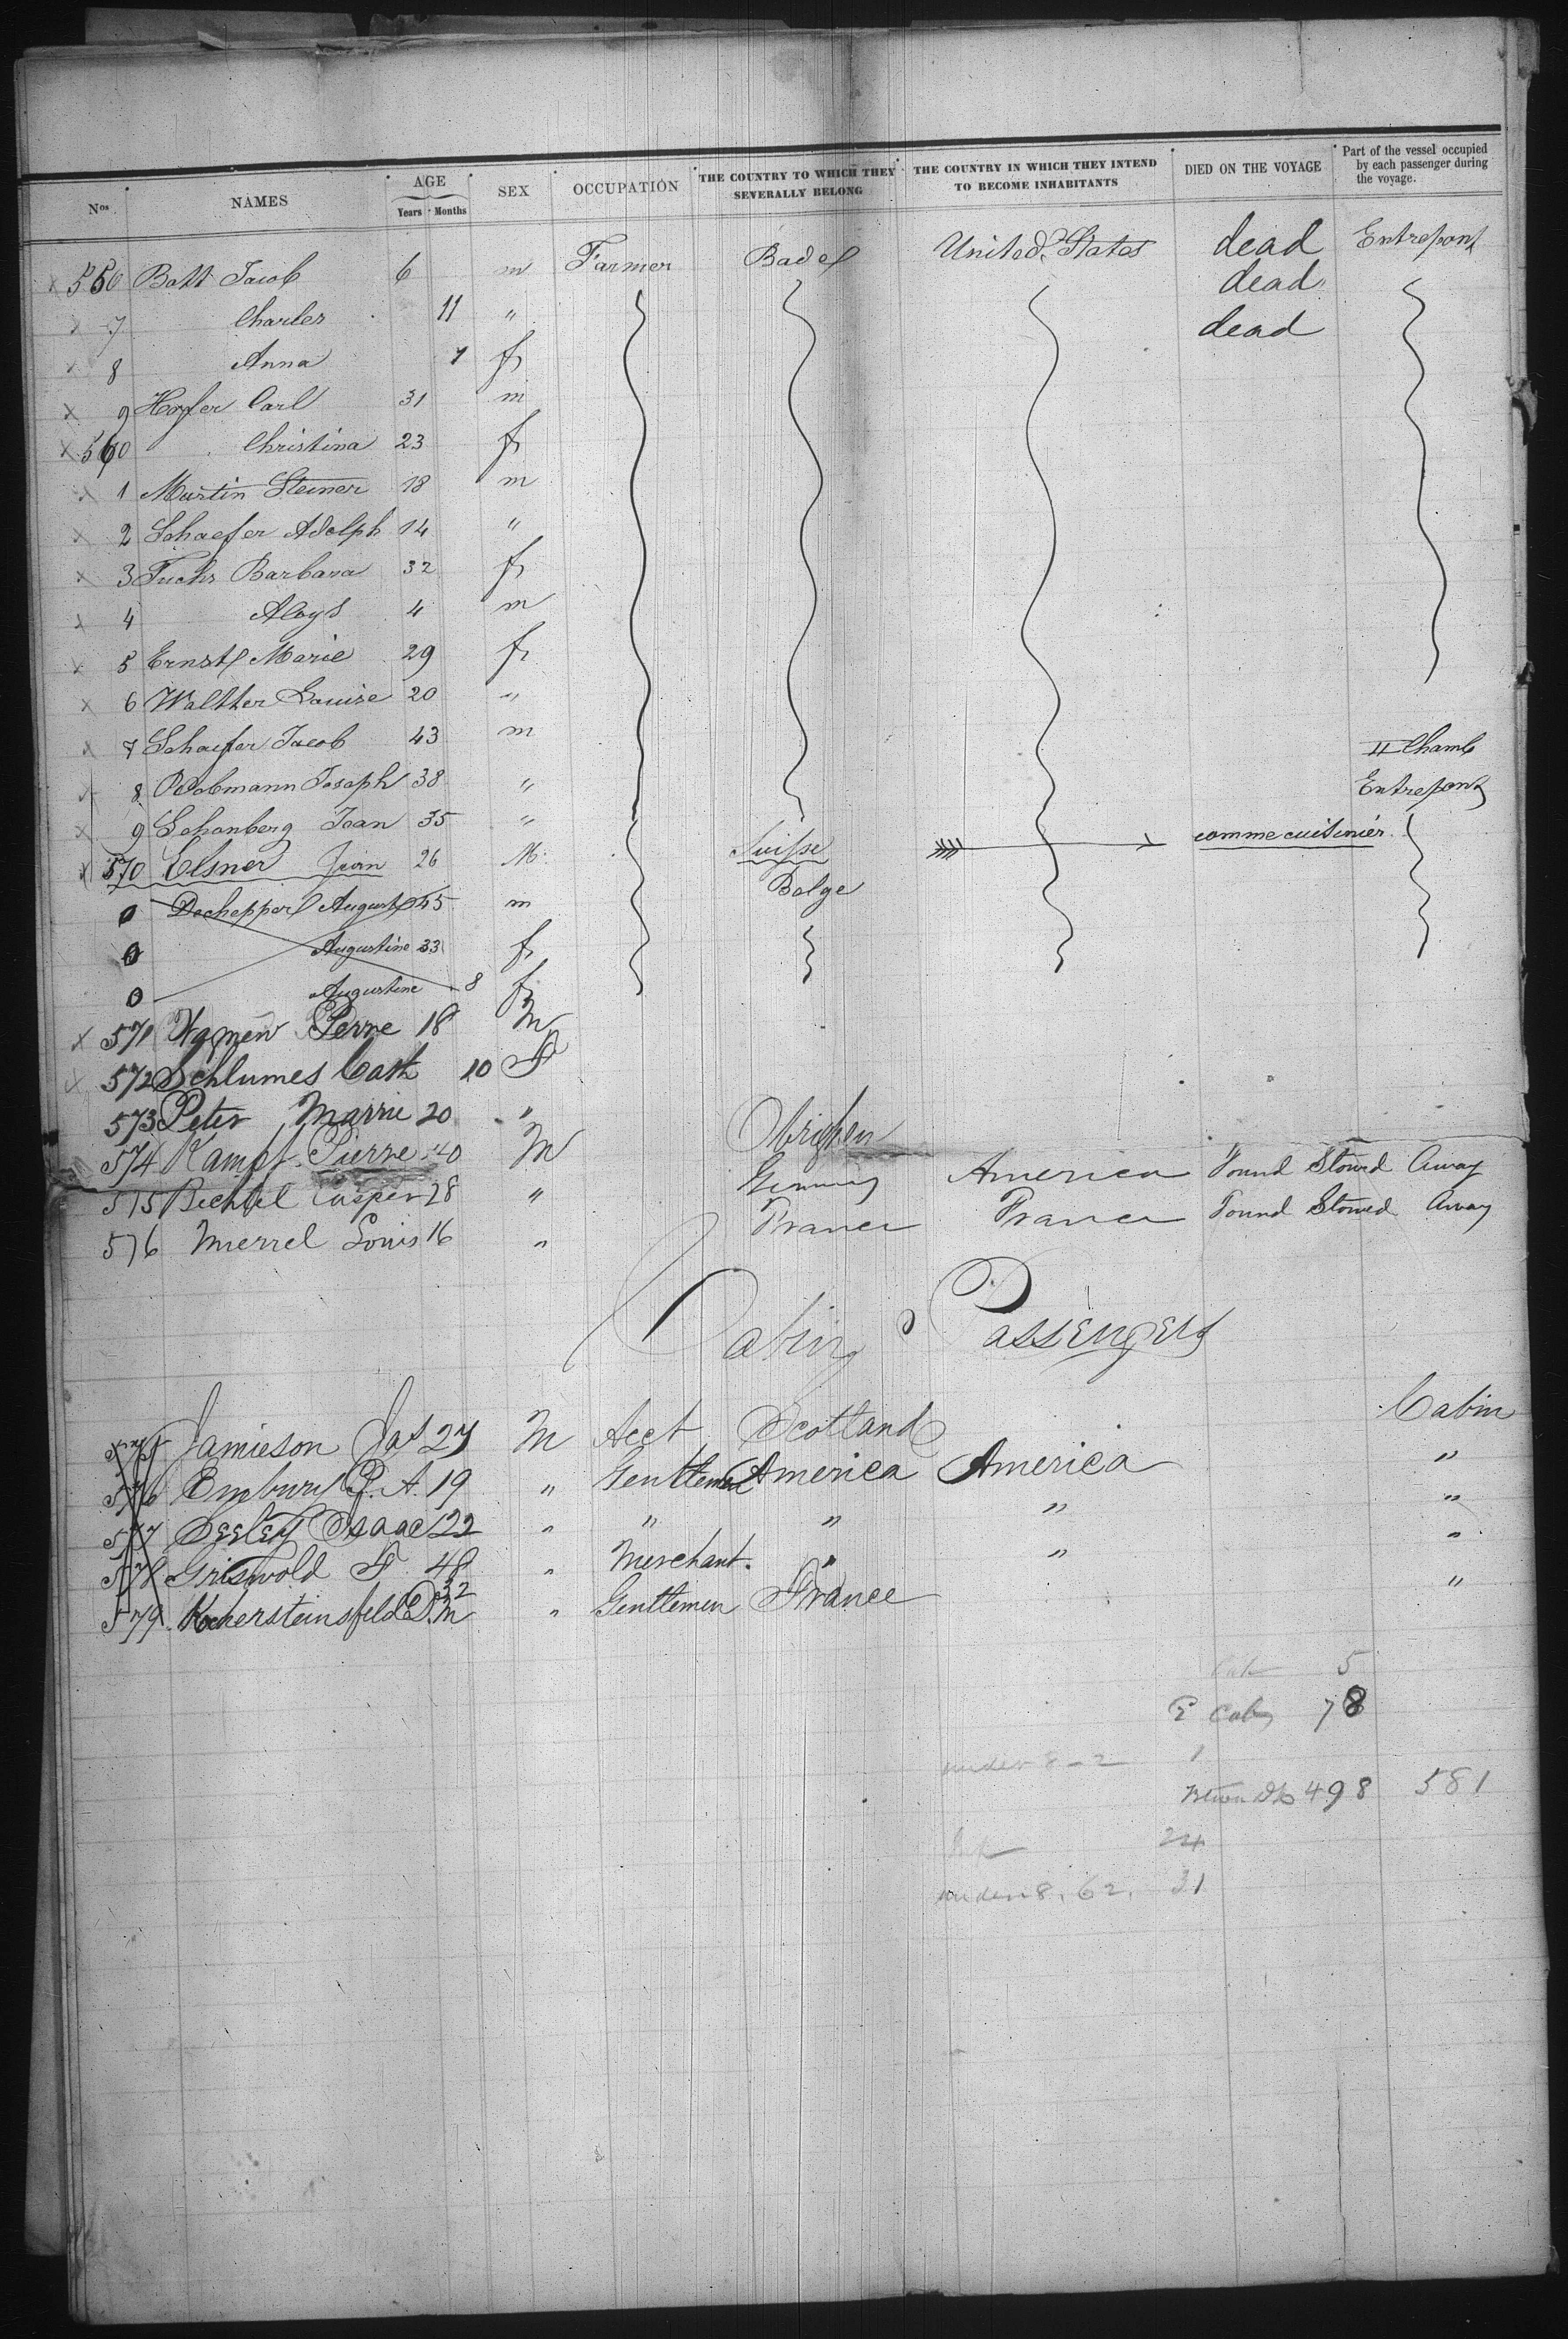 Nos NAMES AGE Years Months SEX OCCUPATION THE COUNTRY TO WHICH THEY SEVERALLY BELONG THE COUNTRY IN WHICH THEY INTEND TO BECOME INHABITANTS DIED ON THE VOYAGE Part of the vessel occupied by each passenger during the voyage.
x 550 Batt Jacob 6 m Farmer Bade United States dead Entrepont
x 7 Charles 11 " dead
x 8 Anna 1 f dead
x 9 Hoyfer Carl 31 m
x 560 Christina 23 f
x 1 Martin Steiner 18 m
x 2 Schaefer Adolph 14 "
x 3 Fuchs Barbara 32 f
x 4 Aloys 4 m
x 5 Ernst Marie 29 f
x 6 Walther Louise 20 "
x 7 Schaefer Jacob 43 m II Chamb
x 8 Jsoseph 38 " Entrepont
x 9 Schonberg Jean 35 "
x 570 Elsner Jean 26 M Suisse comme cuisinier
0 Dechepper August 45 m Belge
0 Augustine 33 f
0 Augustine 8 f
x 571 Pierre 18 M
x 572 Schlumes Cath 10 F
573 Peter Marrie 20 "
574 Kampf Pierre 40 M
575 Bechtel Casper 28 " Germany America Found Stowed Away
576 Merrel Louis 16 " France France Found Stowed Away
Cabin Passengers
575 Jamieson Jas 27 M Acct Scotland Cabin
576 Embury P. A. 19 " Gentlemen America America "
577 Seeley Isaac 22 " " " " "
578 Griswold F 48 " Merchant " " "
579 D. M 32 " Gentlemen France "
Cab 5
2 Cab 78
under 8 - 2 1
Btwn Dk 498 581
24
under 8. 62. 31